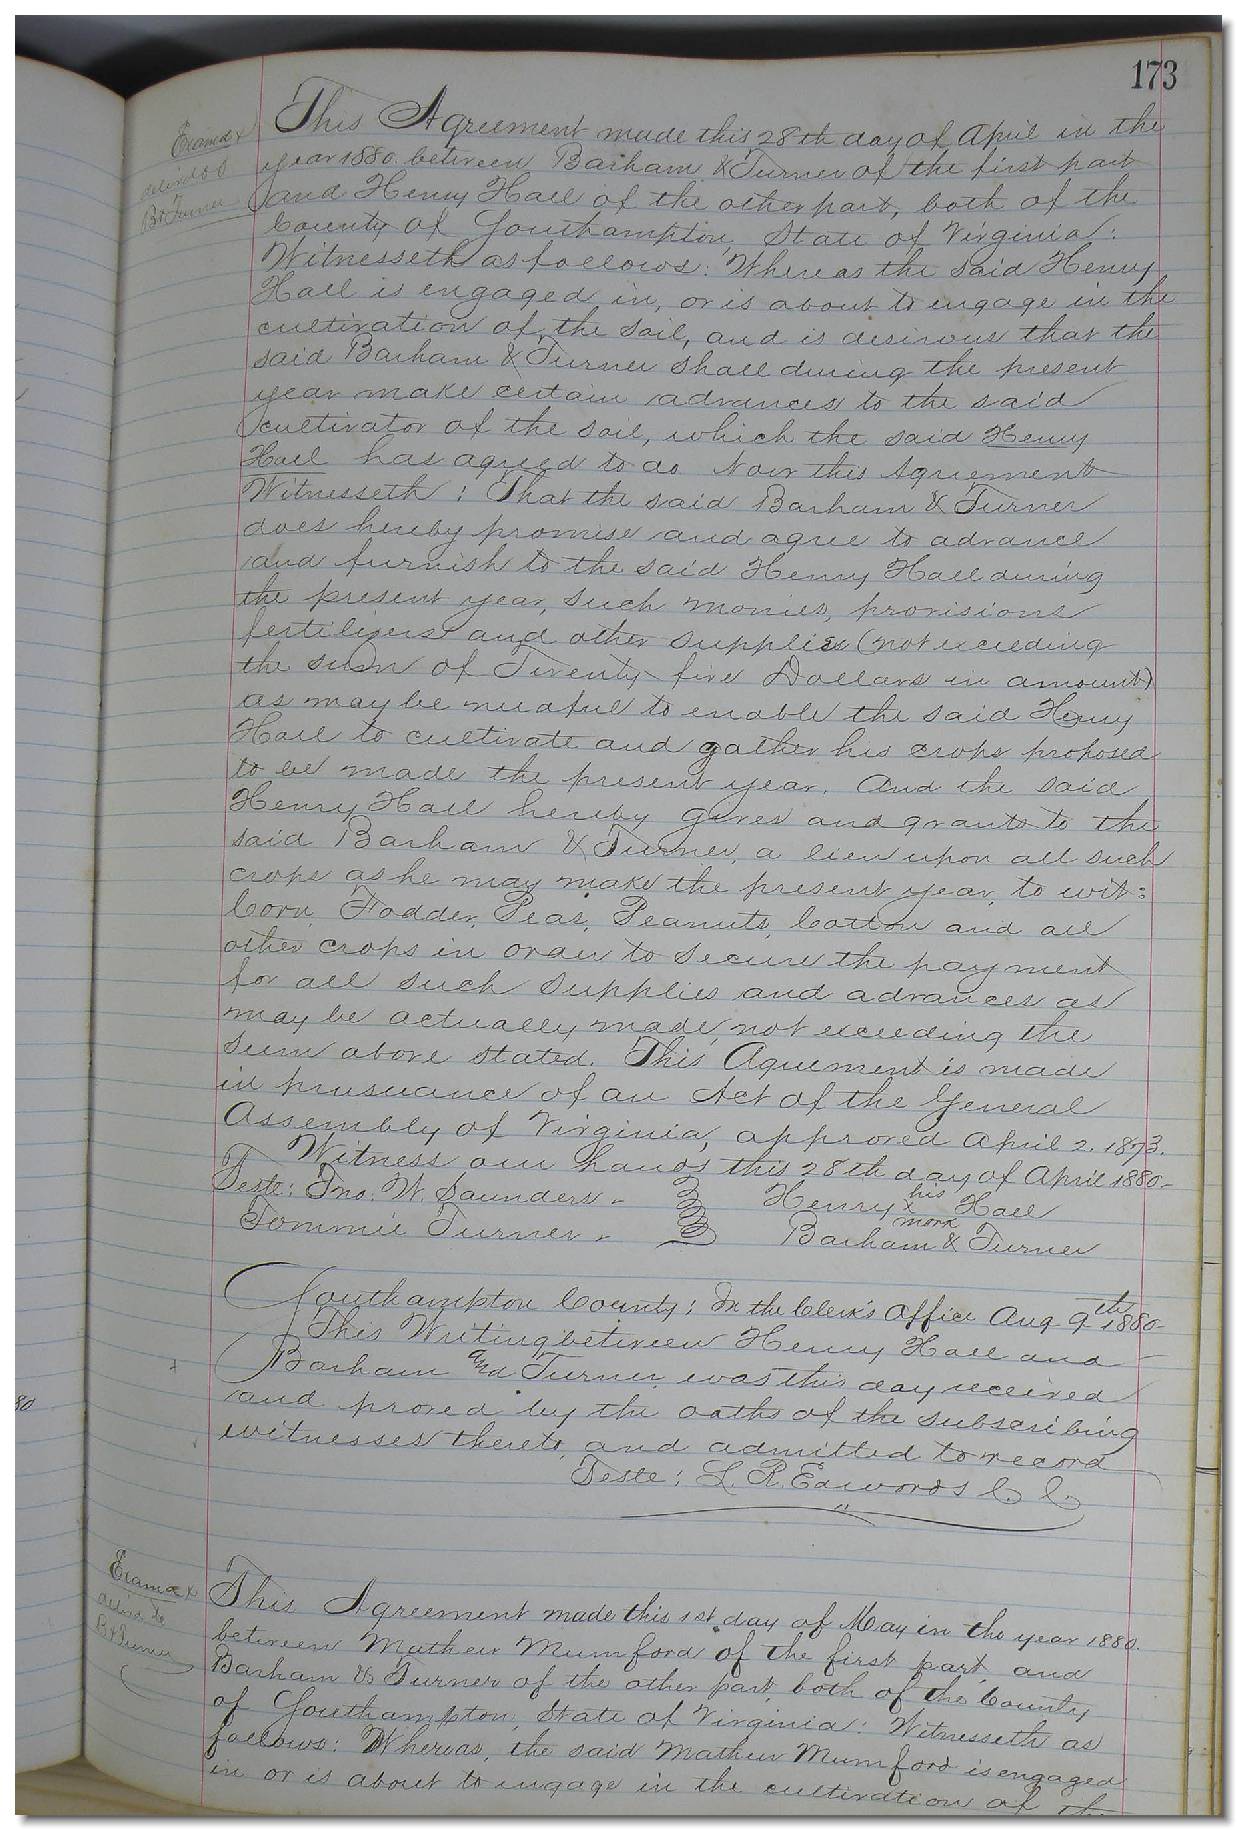 173
Examd &
delivd to
B & Turner
This Agreement made this 28th day of April in the
year 1880. between Barham & Turner of the first part
and Henry Hall of the other part, both of the
County of Southampton, State of Virginia:
Witnesseth as follows: Whereas the said Henry
Hall is engaged in, or is about to engage in the
cultivation of the soil, and is desirous that the
said Barham & Turner shall during the present
year make certain advances to the said
cultivator of the soil, which the said Henry
Hall has agreed to do Now this Agreement
Witnesseth: That the said Barham & Turner
does hereby promise and agree to advance
and furnish to the said Henry Hall during
the present year, such monies, provisions
fertilizers and other supplies (not exceeding
the sum of Twenty five Dollars in amount)
as may be needful to enable the said Henry
Hall to cultivate and gather his crops proposed
to be made the present year. And the said
Henry Hall hereby gives and grants to the
said Barham & Turner, a lien upon all such
crops as he may make the present year, to wit:
Corn, Fodder, Peas, Peanuts, Cotton and all
other crops in order to secure the payment
for all such supplies and advances as
may be actually made, not exceeding the
sum above stated. This Agreement is made
in prusuance of an Act of the General
Assembly of Virginia, approved April 2. 1873.
Witness our hands this 28th day of April 1880-
Teste: Jno. W. Saunders - Henry his x mark Hall
Tommie Turner - Barham & Turner
Southampton County: In the Clerk's Office Aug 9th 1880-
This Writing between Henry Hall and
Barham and Turner, was this day received
and proved by the oaths of the subscribing
witnesses thereto, and admitted to record
Teste: L. R. Edwards C. C.
80
Examd &
delivd to
B & Turner
This Agreement made this 1st day of May in the year 1880.
between Mathew Mumford of the first part, and
Barham & Turner of the other part, both of the County
of Southampton, State of Virginia: Witnesseth as
follows: Whereas, the said Mathew Mumford is engaged
in or is about to engage in the cultivation of the